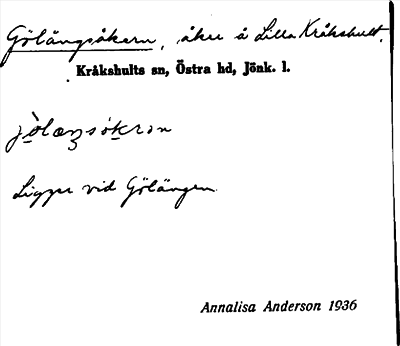 Gölängsåkern, åker å Lilla Kråkshult.
Kråkshults sn, Östra hd, Jönk. l.
Ligger vid Gölängen.
Annalisa Anderson 1936